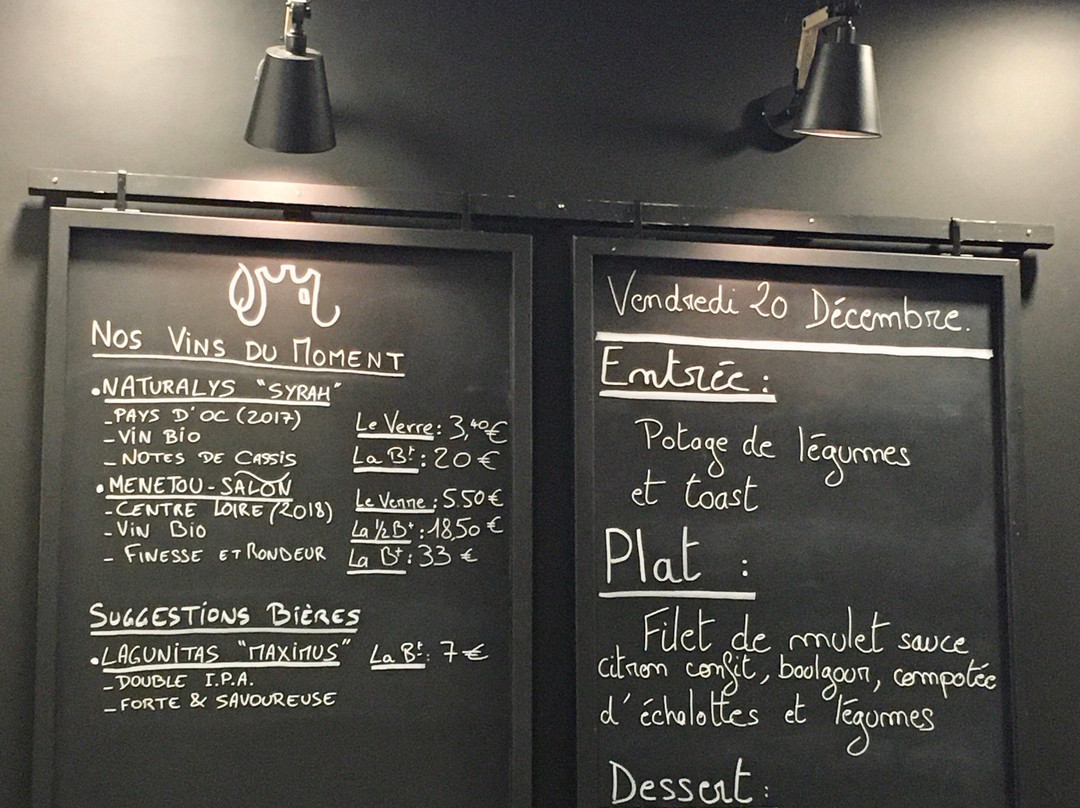 Nos Vins du Moment
• Naturalys "Syrah"
- Pays d'Oc (2017)
Le Verre : 3,40€
- Vin Bio
- Notes de Cassis
La Bt : 20€
• Menetou-Salon
Le Verre : 5.50€
- Centre Loire (2018)
- Vin Bio
La 1/2 Bt : 18,50€
- Finesse et Rondeur
La Bt : 33€
Suggestions Bières
• Lagunitas "Maximus"
La Bt : 7€
- Double I.P.A.
- Forte & Savoureuse
Vendredi 20 Décembre.
Entrée :
Potage de légumes
et toast
Plat :
Filet de mulet sauce
citron confit, boolgour, compotée
d'écholottes et légumes
Dessert :